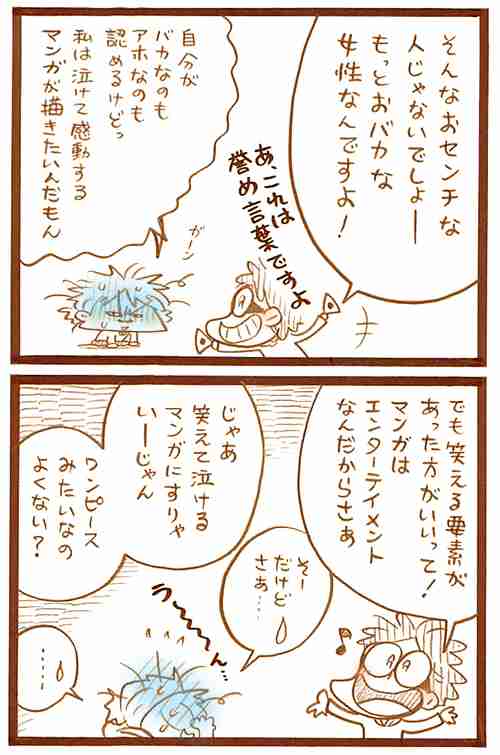 そんなおセンチな
人じゃないでしょー
もっとおバカな
女性なんですよ！
あ、これは
誉め言葉ですよ
自分が
バカなのも
アホなのも
認めるけどっ
私は泣けて感動する
マンガが描きたいんだもん
ガーン
でも笑える要素が
あった方がいいって！
マンガは
エンターテイメント
なんだからさぁ
じゃあ
笑えて泣ける
マンガにすりゃ
いーじゃん
ワンピース
みたいなの
よくない？
そー
だけど
さぁ……
うーーーん…
……